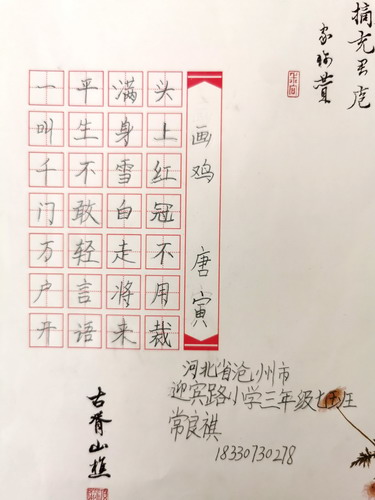 摘充君庖
家瑜赏
画鸡 唐寅
头上红冠不用裁
满身雪白走将来
平生不敢轻言语
一叫千门万户开
河北省沧州市
迎宾路小学三年级七班
常良祺
18330730278
古脊山樵